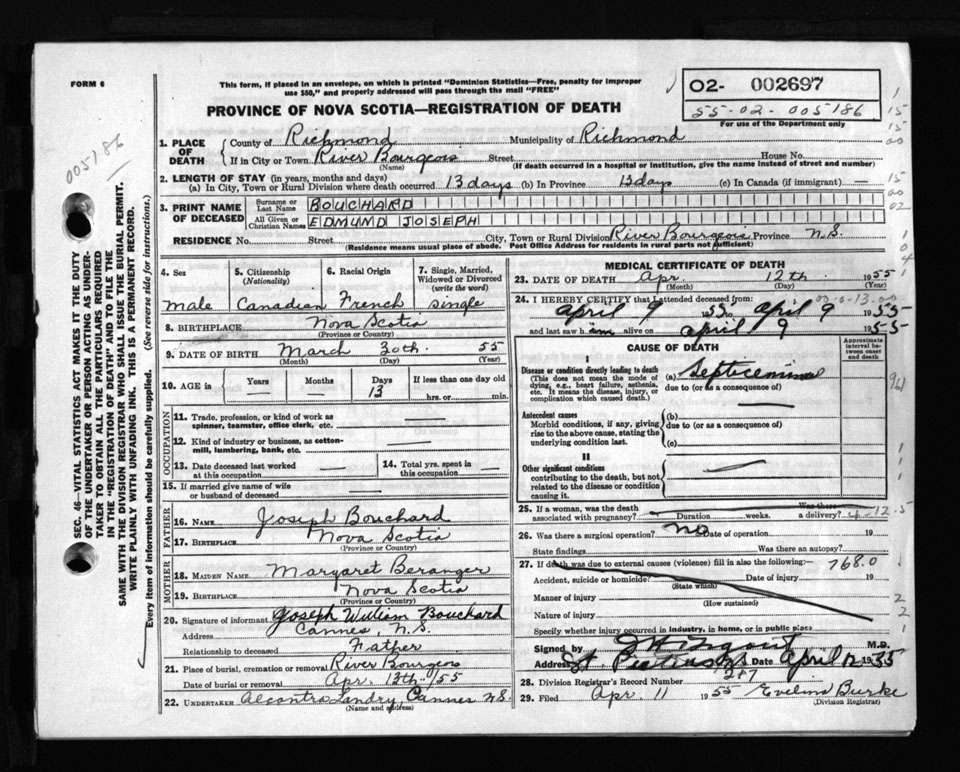 FORM 6
This form, if placed in an envelope, on which is printed "Dominion Statistics—Free, penalty for improper
use $50," and properly addressed will pass through the mail "FREE"
PROVINCE OF NOVA SCOTIA—REGISTRATION OF DEATH
02- 002697
55-02-005186
For use of the Department only
005186
SEC. 46—VITAL STATISTICS ACT MAKES IT THE DUTY
OF THE UNDERTAKER OR PERSON ACTING AS UNDER-
TAKER TO OBTAIN ALL THE PARTICULARS REQUIRED
IN THE "REGISTRATION OF DEATH" AND TO FILE THE
SAME WITH THE DIVISION REGISTRAR WHO SHALL ISSUE THE BURIAL PERMIT.
WRITE PLAINLY WITH UNFADING INK. THIS IS A PERMANENT RECORD.
Every item of information should be carefully supplied. (See reverse side for instructions.)
1. PLACE OF DEATH County of Richmond Municipality of Richmond
If in City or Town River Bourgeois Street House No.
(Name) (If death occurred in a hospital or institution, give the name instead of street and number)
2. LENGTH OF STAY (in years, months and days)
(a) In City, Town or Rural Division where death occurred 13 days (b) In Province 13 days (c) In Canada (if immigrant) —
3. PRINT NAME OF DECEASED Surname or Last Name BOUCHARD
All Given or Christian Names EDMUND JOSEPH
RESIDENCE No. Street City, Town or Rural Division River Bourgeois Province N.S.
(Residence means usual place of abode. Post Office Address for residents in rural parts not sufficient)
4. Sex 5. Citizenship (Nationality) 6. Racial Origin 7. Single, Married, Widowed or Divorced (write the word)
male Canadian French single
8. BIRTHPLACE Nova Scotia
(Province or Country)
9. DATE OF BIRTH March 30th 55
(Month) (Day) (Year)
10. AGE in Years Months Days 13 If less than one day old
hrs. or min.
OCCUPATION
11. Trade, profession, or kind of work as
spinner, teamster, office clerk, etc. —
12. Kind of industry or business, as cotton-
mill, lumbering, bank, etc. —
13. Date deceased last worked
at this occupation — 14. Total yrs. spent in
this occupation —
15. If married give name of wife
or husband of deceased —
FATHER
16. NAME Joseph Bouchard
17. BIRTHPLACE Nova Scotia
(Province or Country)
MOTHER
18. MAIDEN NAME Margaret Beranger
19. BIRTHPLACE Nova Scotia
(Province or Country)
20. Signature of informant Joseph William Bouchard
Address Cannes, N.S.
Relationship to deceased Father
21. Place of burial, cremation or removal River Bourgeois
Date of burial or removal Apr. 13th /55
22. UNDERTAKER Landry, Cannes N.S.
(Name and address)
MEDICAL CERTIFICATE OF DEATH
23. DATE OF DEATH Apr. 12th 1955
(Month) (Day) (Year)
24. I HEREBY CERTIFY that I attended deceased from:
April 9 1955 to April 9 1955
and last saw him alive on April 9 1955
CAUSE OF DEATH
Approximate interval between onset and death
I
Disease or condition directly leading to death
(This does not mean the mode of
dying, e.g., heart failure, asthenia,
etc. It means the disease, injury, or
complication which caused death.)
(a) Septicemia
due to (or as a consequence of)
—
Antecedent causes
Morbid conditions, if any, giving
rise to the above cause, stating the
underlying condition last.
(b)
due to (or as a consequence of)
(c)
II
Other significant conditions
contributing to the death, but not
related to the disease or condition
causing it.
25. If a woman, was the death
associated with pregnancy? Duration weeks. Was there a delivery?
4-12-5
26. Was there a surgical operation? No Date of operation 19
State findings Was there an autopsy?
27. If death was due to external causes (violence) fill in also the following:— 768.0
Accident, suicide or homicide? Date of injury 19
(State which)
Manner of injury
(How sustained)
Nature of injury
Specify whether injury occurred in industry, in home, or in public place
Signed by M.D.
Address St. Peters NS Date April 12 1955
28. Division Registrar's Record Number 247
29. Filed Apr. 11 1955 Evelina Burke
(Division Registrar)